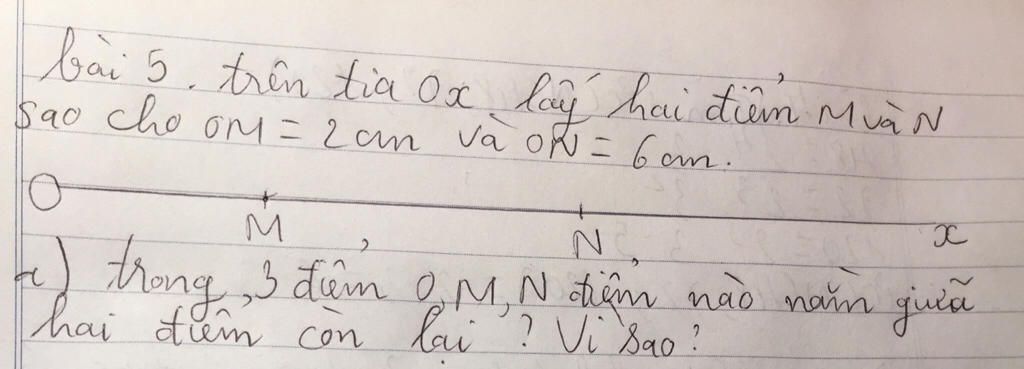 bài 5. trên tia Ox lấy hai điểm M và N
sao cho OM = 2cm và ON = 6cm.
O M N x
a) trong 3 điểm O, M, N điểm nào nằm giữa
hai điểm còn lại? Vì sao?